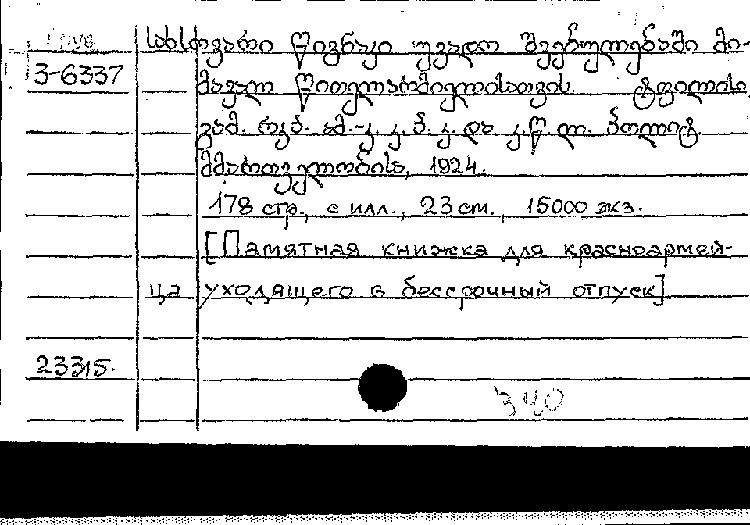 სახსოვარი წიგნაკი უვადო შვებულებაში მი-
3-6337 მავალ წითელარმიელისათვის ტფილისი
გამ. რევ. ს.-კ. კ. ა. კ. და კ. წ. ლ. პოლიტ
მმართველობისა, 1924.
178 стр., с илл., 23 cm., 15000 экз.
[Памятная книжка для красноармей-
ца уходящего в бессрочный отпуск]
23315.
340